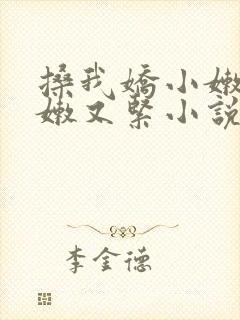 搡我嬌小嫩
嫩又緊小說
李金德